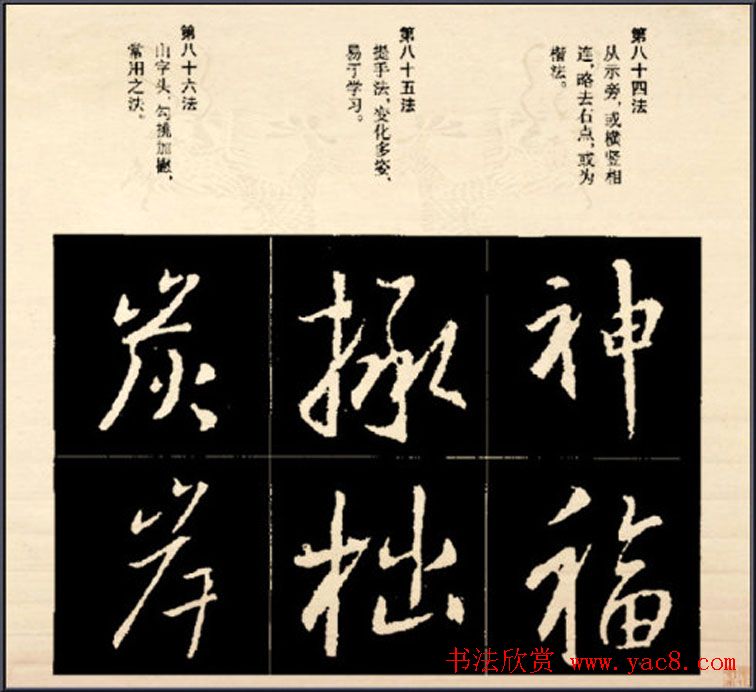 第八十四法
从示旁，或横竖相
连，略去右点，或为
楷法。
神
福
第八十五法
提手法，变化多姿，
易于学习。
拙
第八十六法
山字头，勾挑加撇，
常用之法。
炭
岸
书法欣赏 www.yac8.com